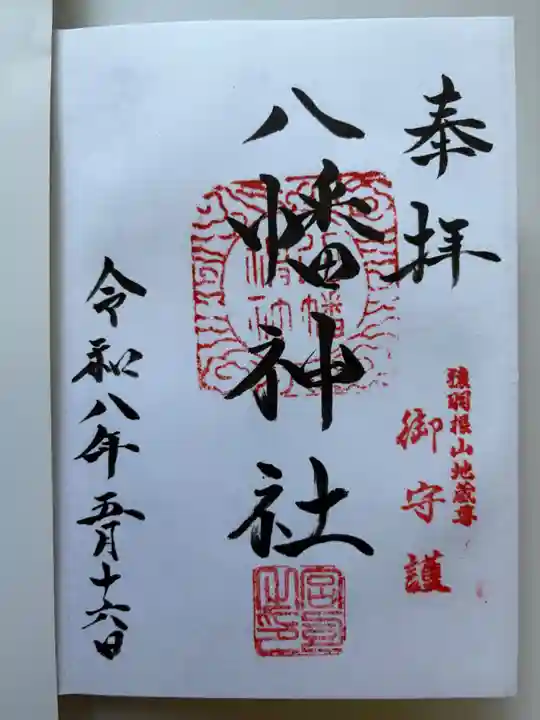 奉拝
猿羽根山地蔵尊
御守護
八幡神社
令和八年五月十六日